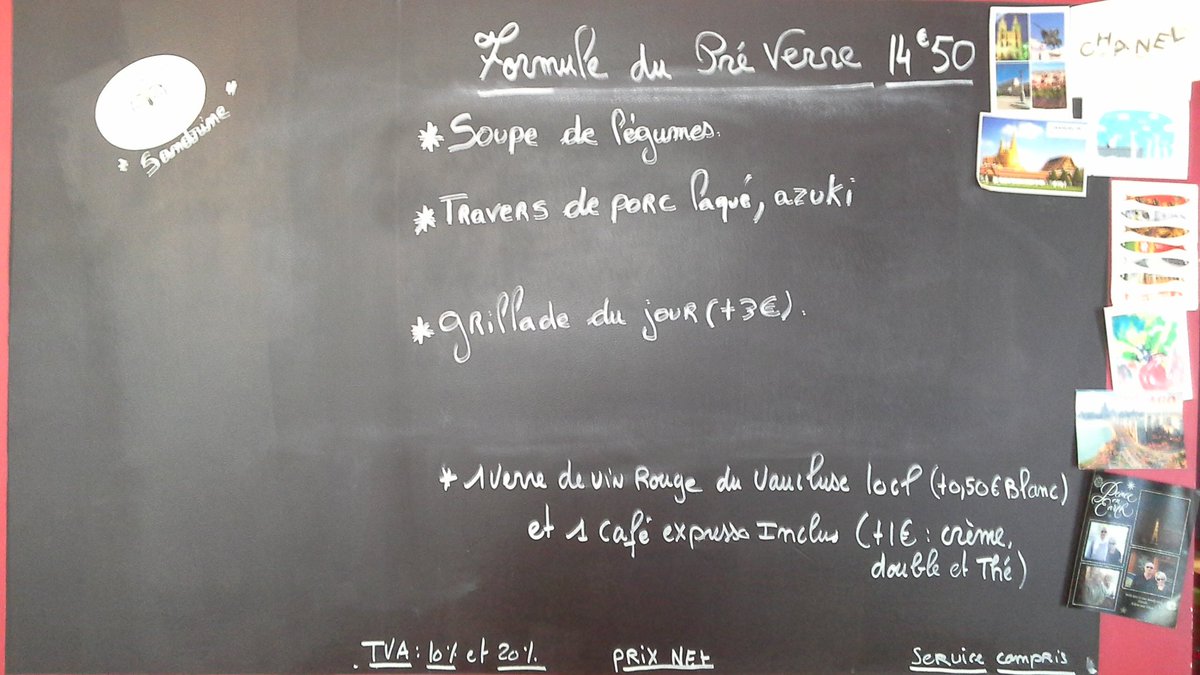 Formule du Pré Verre 14€50
* Soupe de légumes.
* Travers de porc laqué, azuki
* Grillade du jour (+3€).
* 1 verre de vin Rouge du Vaucluse 10cl (+0,50€ Blanc)
et 1 café expresso Inclus (+1€ : crème,
double et Thé)
. TVA : 10% et 20%.
PRIX NET
Service compris
* Sandrine "
CHANEL